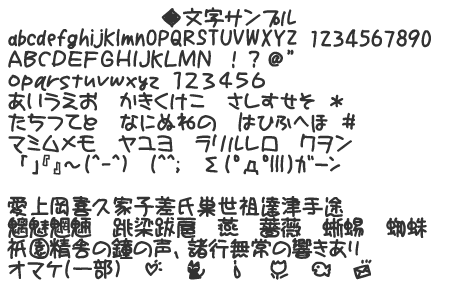 ◆文字サンプル
abcdefghijklmnOPQRSTUVWXYZ 1234567890
ABCDEFGHIJKLMN !?@"
opqrstuvwxyz 123456
あいうえお かきくけこ さしすせそ *
たちつてと なにぬねの はひふへほ #
マミムメモ ヤユヨ ラリルレロ ワヲン
「」『』～(^-^) (^^; Σ(ﾟдﾟlll)ガーン
愛上岡喜久家子差氏巣世祖達津手途
魑魅魍魎 跳梁跋扈 燕 薔薇 蜥蜴 蜘蛛
祇園精舎の鐘の声、諸行無常の響きあり
オマケ(一部)